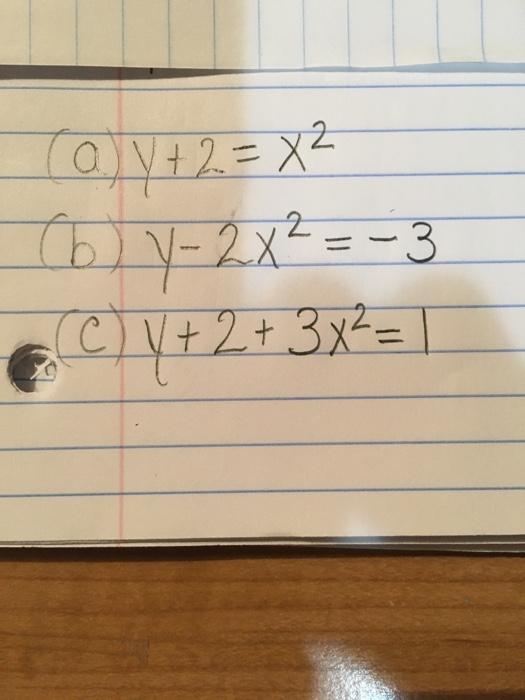 (a) y+2=x²
(b) y-2x²=-3
(c) y+2+3x²=1